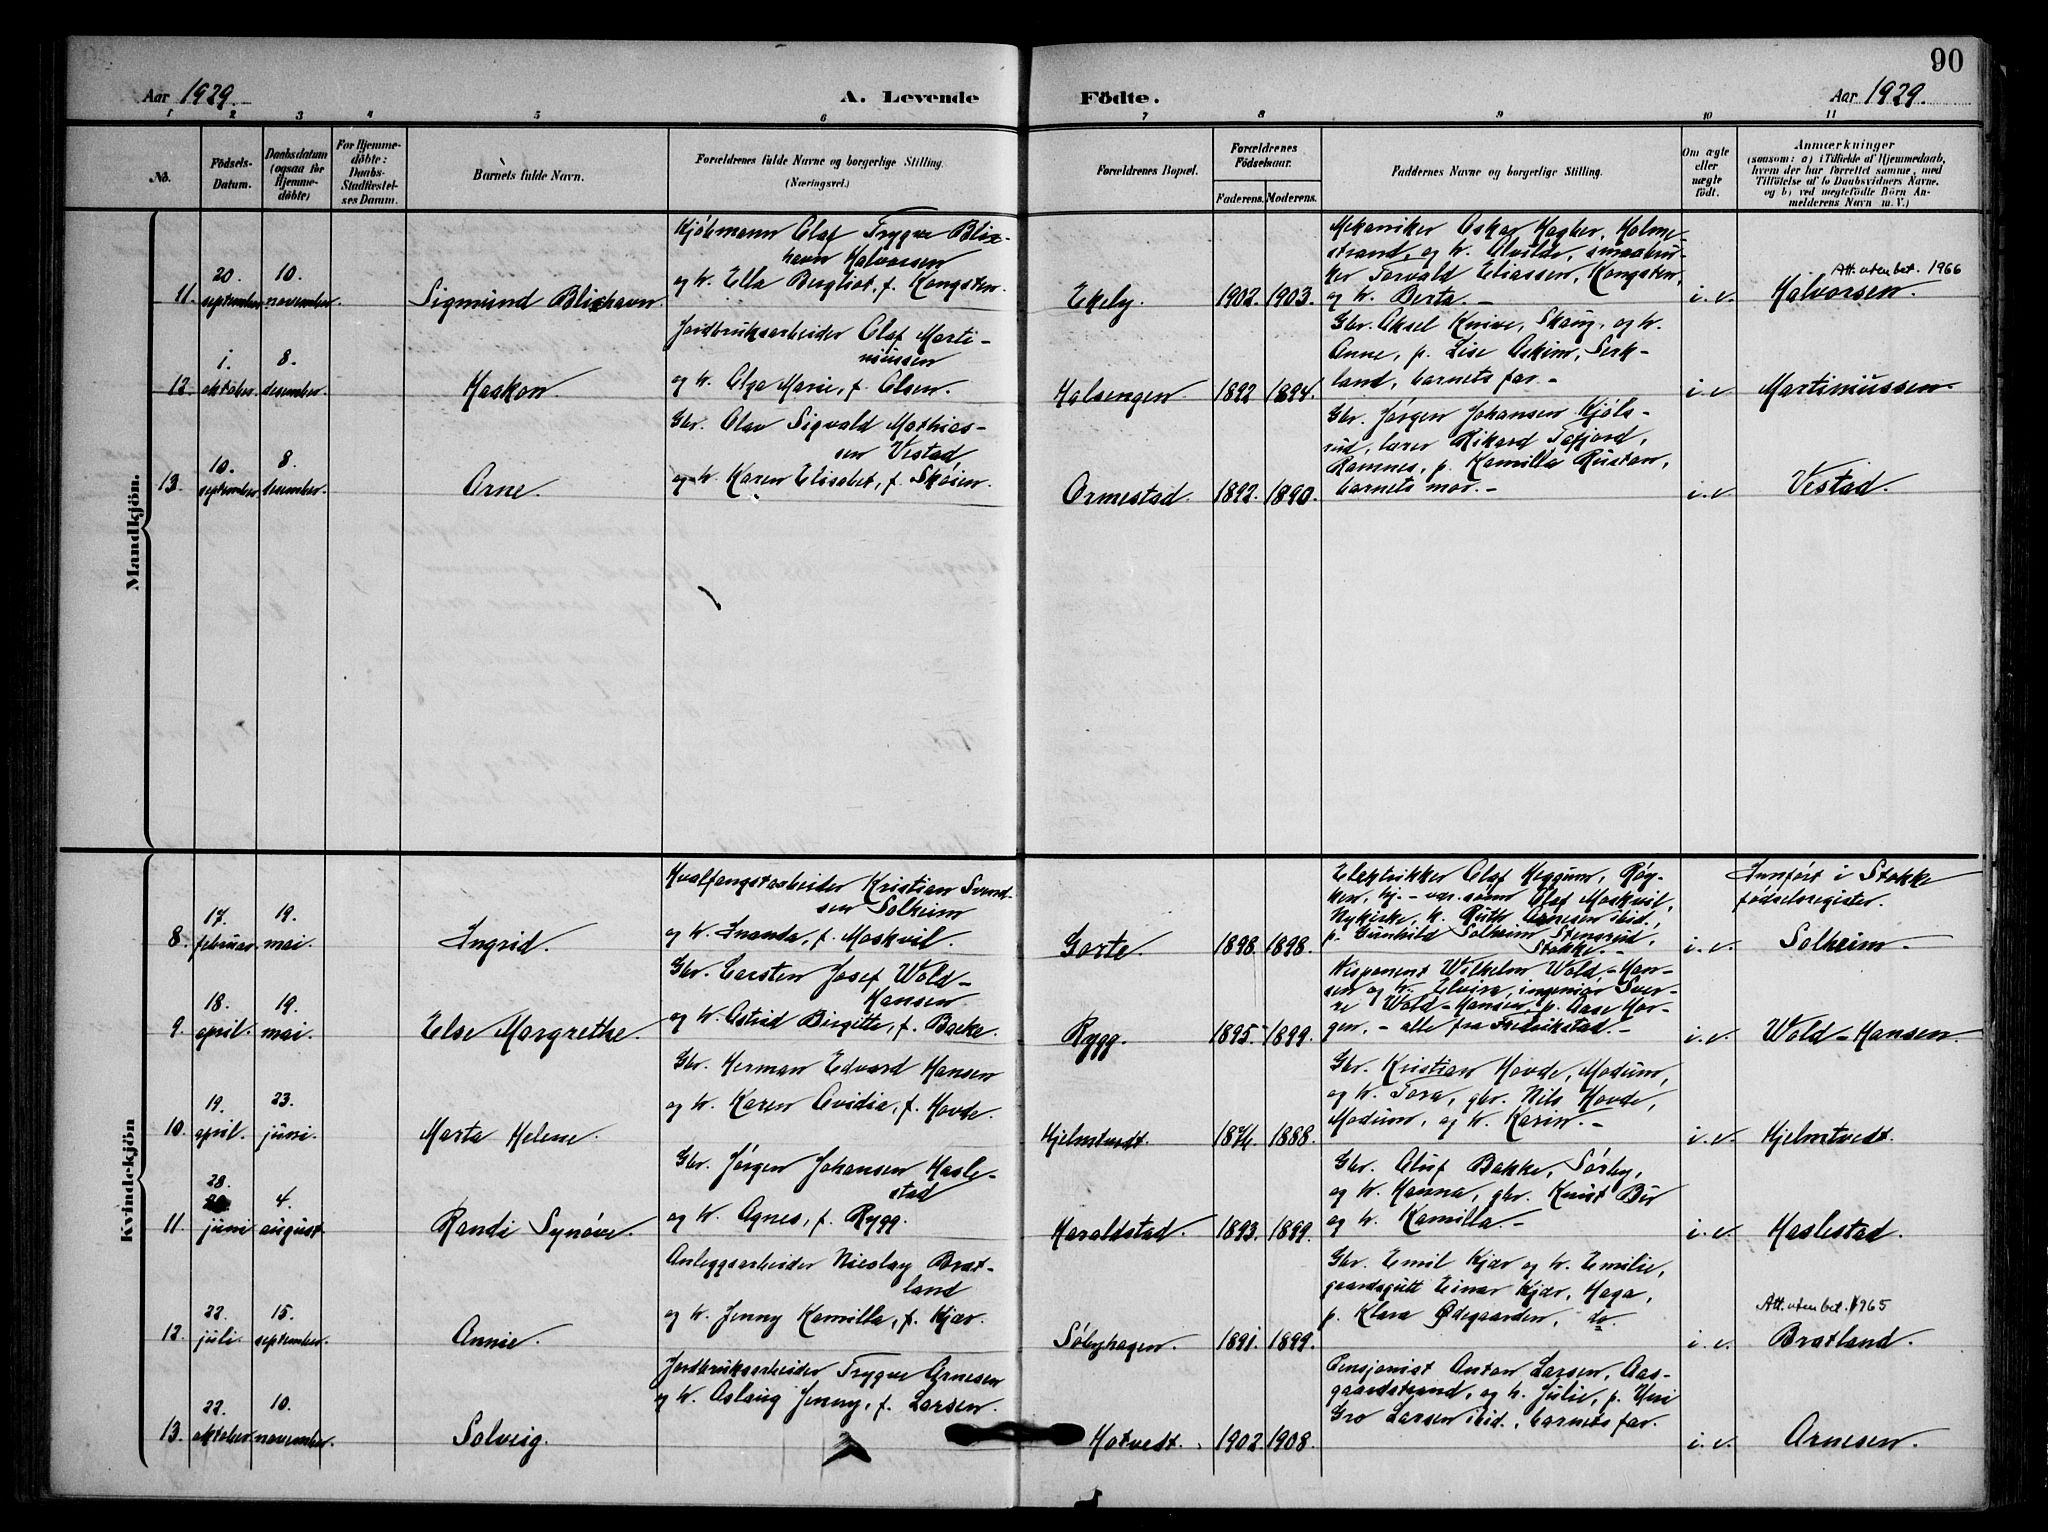 90
Aar 1929.
A. Levende Födte.
Aar 1929.
1 2 3 4 5 6 7 8 9 10 11
No.
Födsels-
Datum.
Daabsdatum
(ogsaa for
Hjemme-
döbte)
For Hjemme-
döbte:
Daabs-
Stadfæstel-
ses Datum.
Barnets fulde Navn.
Forældrenes fulde Navne og borgerlige Stilling.
(Næringsvei.)
Forældrenes Bopæl.
Forældrenes
Födselsaar.
Faderens. Moderens.
Faddernes Navne og borgerlige Stilling.
Om ægte
eller
uægte
födt.
Anmærkninger
(saasom: a) i Tilfælde af Hjemmedaab,
hvem der har forrettet samme, med
Tilföielse af to Daabsvidners Navne.
og b) ved uægtefödte Börn An-
melderens Navn m. V.)
Mandkjön.
11.
20.
september.
10.
november.
Sigmund Blixhavn.
Kjøbmann Olaf Trygve Blix-
havn Halvorsen
og h. Ella Bergliot, f. Kongsten.
Ekeby
1902. 1903.
Mekaniker Oskar Hagber, Holme-
strand, og h. Alvilde, smaabru-
ker Torvald Eliassen, Kongsten,
og h. Berta. -
i. e.
Att. uten bet. 1966
Halvorsen.
12.
1.
oktober.
8.
desember.
Haakon.
Jordbruksarbeider Olaf Marti-
niussen
og h. Olga Marie, f. Olsen.
Holsengen
1892 1894.
Gbr. Aksel Knive, Skaug, og h.
Anne, p. Lise Askim, Serk-
land, barnets far. -
i. e.
Martiniussen.
13.
10.
september.
8.
desember.
Arne.
Gbr. Olav Sigvald Mathias-
sen Vestad
og h. Karen Elisabet, f. Skøien.
Ormestad
1892. 1890.
Gbr. Jørgen Johansen Kjøls-
rud, lærer Rikard Tafjord,
Ramnes, p. Kamilla Rustan,
barnets mor. -
i. e.
Vestad.
Kvindekjön
8.
17.
februar.
19.
mai.
Ingrid.
Hvalfangstarbeider Kristian Svend-
sen Solheim
og h. Inanda, f. Moskvil.
Gorte.
1898. 1898.
Elektrikker Olaf Heggum, Røy-
ken, hj. - var. sønn Olaf Moskvil,
Nykirke, h. Ruth Arnesen ibid,
p. Gunhild Solheim, Stensrud,
Stokke. -
i. e.
Innført i Stokke
fødselsregister.
Solheim.
9.
18.
april.
19.
mai.
Else Margrethe.
Gbr. Carsten Josef Wold-
Hansen
og h. Astrid Birgitte, f. Backe.
Rygg.
1895. 1899.
Disponent Wilhelm Wold-Han-
sen og h. Elvira, ingeniør Sver-
re Wold-Hansen, p. Aase Hor-
gen, - alle fra Fredrikstad. -
i. e.
Wold-Hansen.
10.
19.
april.
23.
juni.
Marta Helene.
Gbr. Herman Edvard Hansen
og h. Karen Ovidia, f. Hovde.
Hjelmtvedt.
1874. 1888.
Gbr. Kristian Hovde, Modum,
og h. Tora, gbr. Nils Hovde,
Modum, og h. Karin. -
i. e.
Hjelmtvedt.
11.
28.
juni
4.
august.
Randi Synøve.
Gbr. Jørgen Johansen Hasle-
stad
og h. Agnes, f. Rygg.
Haraldstad.
1893. 1899.
Gbr. Oluf Bakke, Sørby,
og h. Hanna, gbr. Knut Bø
og h. Kamilla. -
i. e.
Haslestad.
12.
22.
juli.
15.
september.
Annie.
Anleggsarbeider Nicolay Brat-
land
og h. Jenny Kamilla, f. Kjær.
Søbyhagen.
1891. 1899.
Gbr. Emil Kjær og h. Emilie,
gaardsgutt Einar Kjær, Haga,
p. Klara Ødegaarden, do.
i. e.
Att. uten bet. 1965
Bratland.
13.
22.
oktober.
10.
november.
Solveig.
Jordbruksarbeider Trygve Arnesen
og h. Aslaug Jenny, f. Larsen.
Hotvedt.
1902. 1908.
Pensjonist Anton Larsen, Aas-
gaardstrand, og h. Julie, p. Uni
Gro Larsen ibid., barnets far.
i. e.
Arnesen.